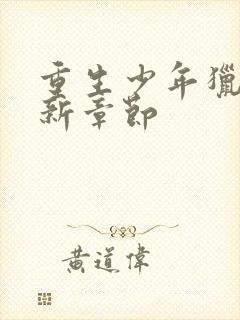 重生少年獵
新章節
黄道偉